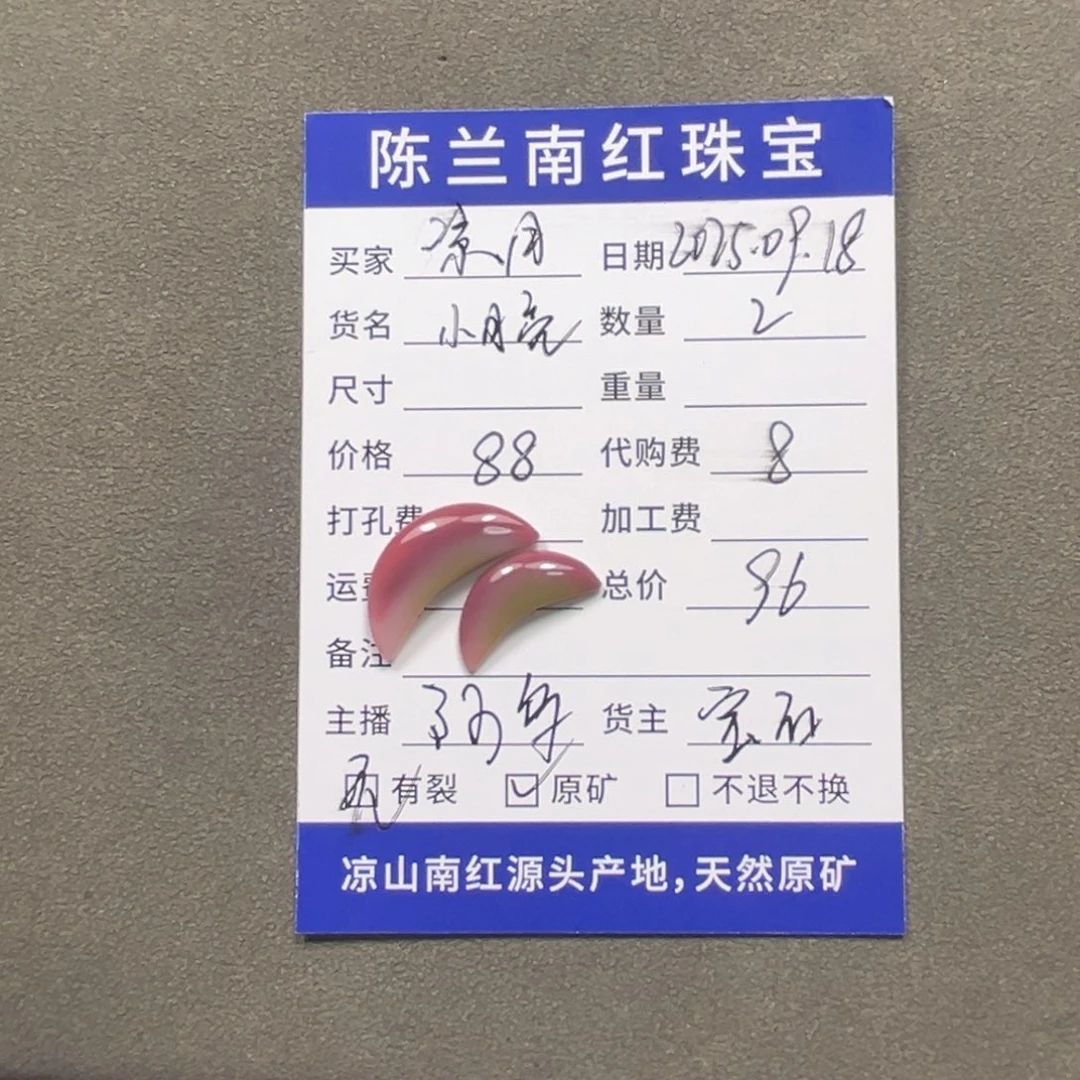 陈兰南红珠宝
买家 凉月 日期 2025.09.18
货名 小月亮 数量 2
尺寸 重量
价格 88 代购费 8
打孔费 加工费
运费 总价 96
备注
主播 阿华 货主
无 有裂 原矿 不退不换
凉山南红源头产地,天然原矿